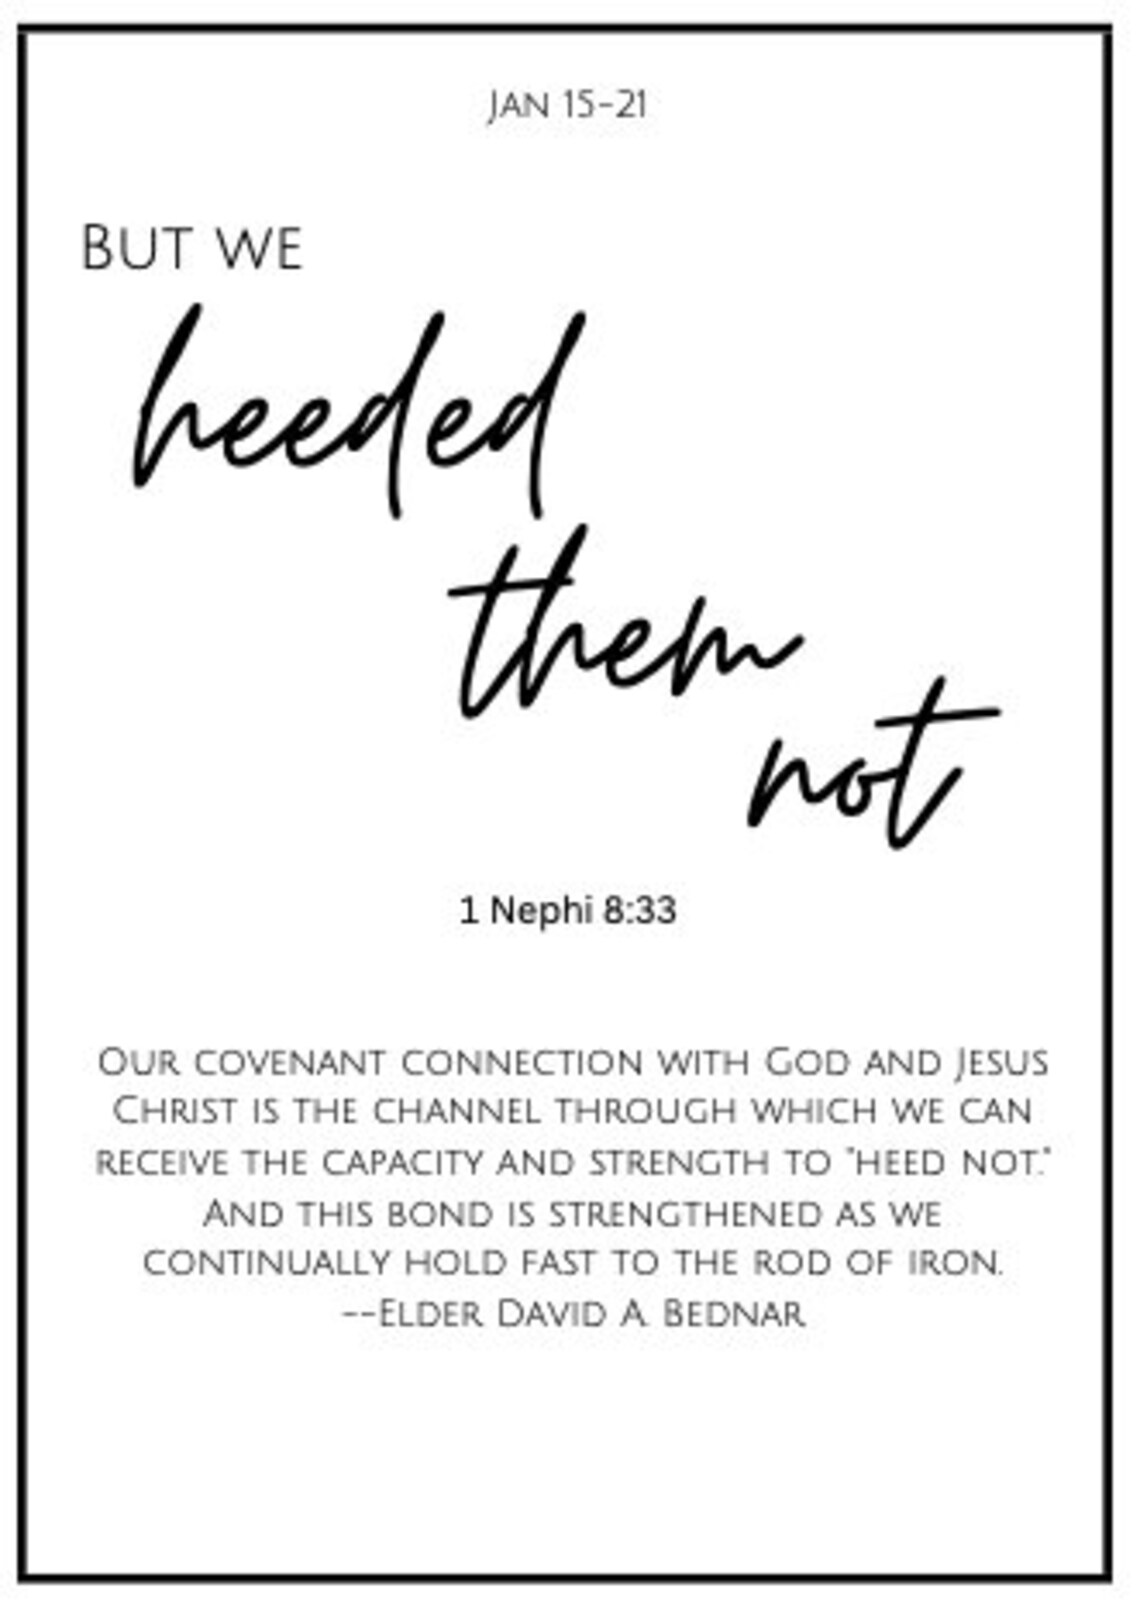 Jan 15-21
But we
heeded
them
not
1 Nephi 8:33
Our covenant connection with God and Jesus
Christ is the channel through which we can
receive the capacity and strength to "heed not."
And this bond is strengthened as we
continually hold fast to the rod of iron.
--Elder David A. Bednar